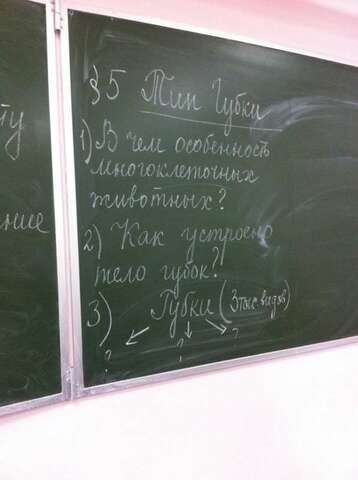 ту
ние
§5 Тип Губки
1) В чем особенность
многоклеточных
животных?
2) Как устроено
тело губок?
3) Губки (3 тыс видов)
? ? ?